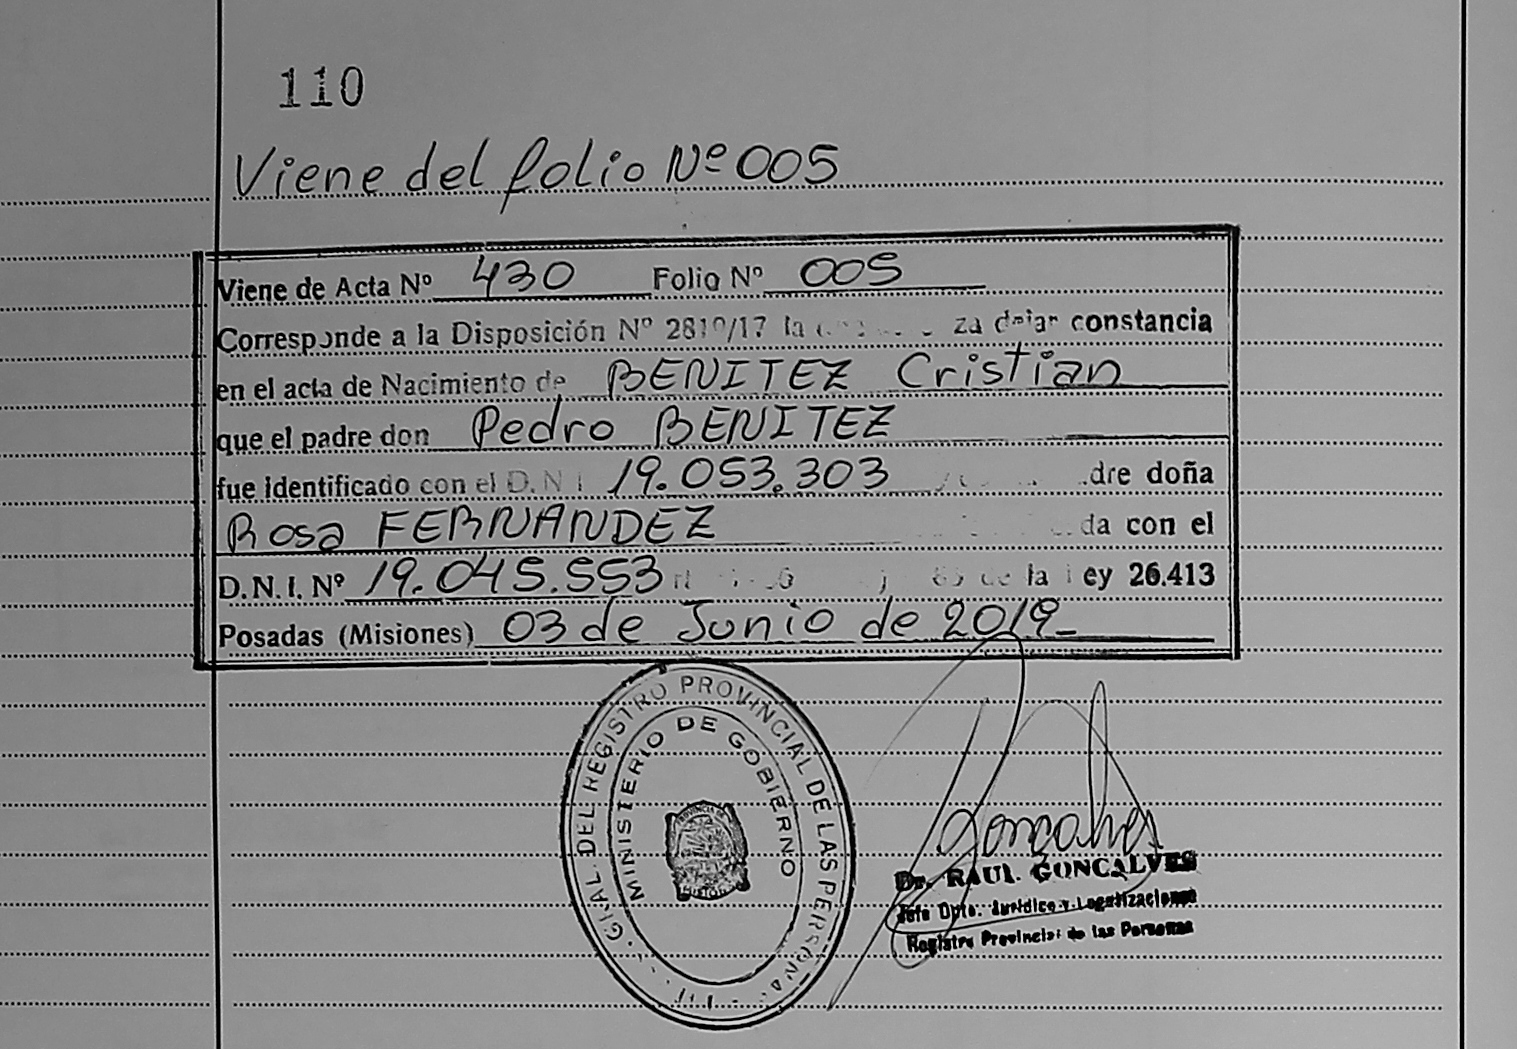 110
Viene del folio Nº 005
Viene de Acta Nº 430 Folio Nº 005
Corresponde a la Disposición Nº 2810/17 la constancia
en el acta de Nacimiento de BENITEZ Cristian
que el padre don Pedro BENITEZ
fue identificado con el D.N.I 19.053.303 doña
Rosa FERNANDEZ con el
D.N.I. Nº 19.045.553 de la Ley 26.413
Posadas (Misiones) 03 de Junio de 2019
GRAL. DEL REGISTRO PROVINCIAL DE LAS PERSONAS
MINISTERIO DE GOBIERNO
Goncalves
Dr. RAUL GONCALVES
Jefe Dpto. Jurídico y Legalizaciones
Registro Provincial de las Personas